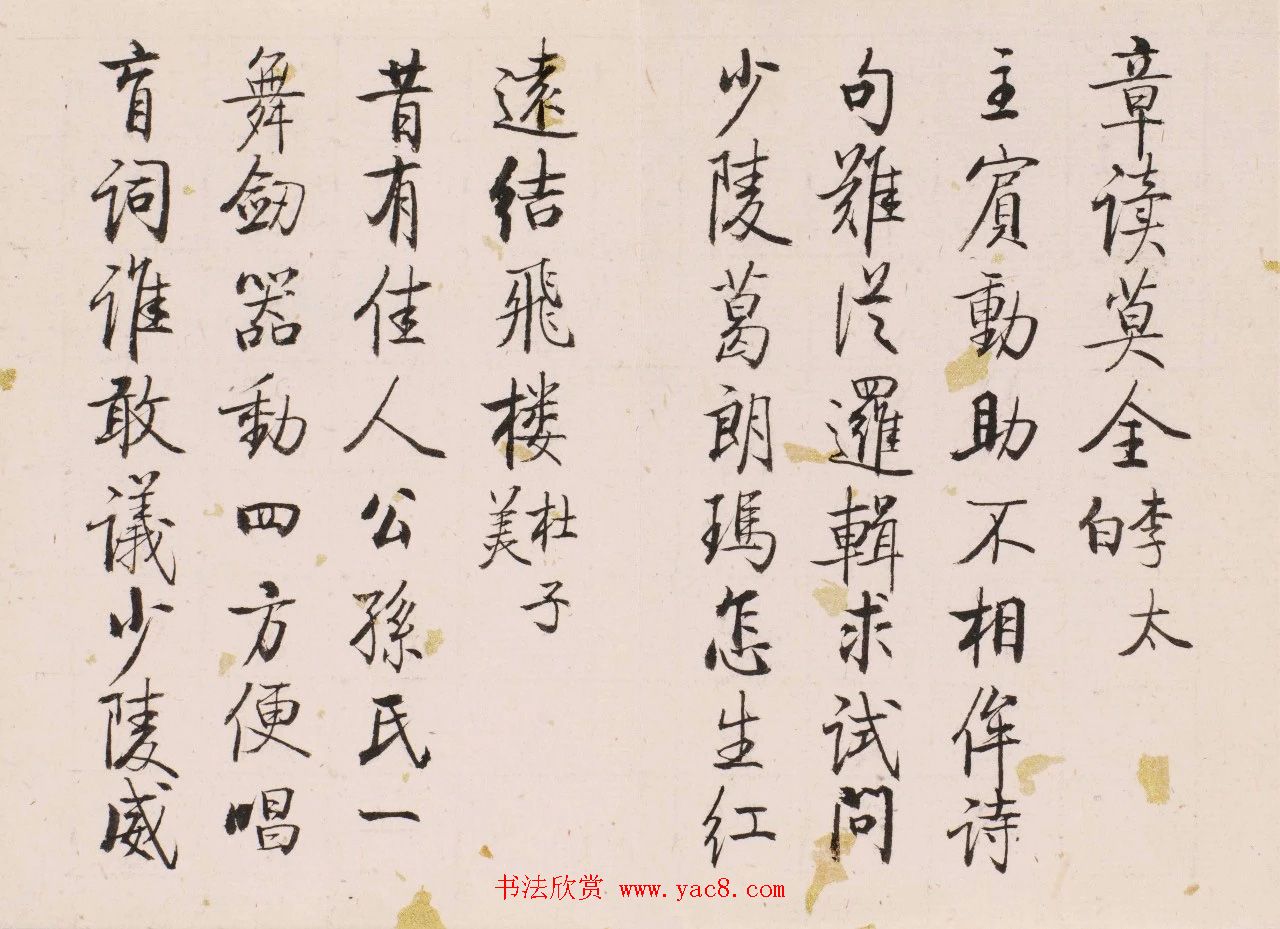 章读莫全李太白
主賓動助不相侔诗
句難從邏輯求试问
少陵葛朗瑪怎生红
遠结飛楼杜子美
昔有佳人公孫氏一
舞劔器動四方便唱
盲词谁敢議少陵威
书法欣赏 www.yac8.com